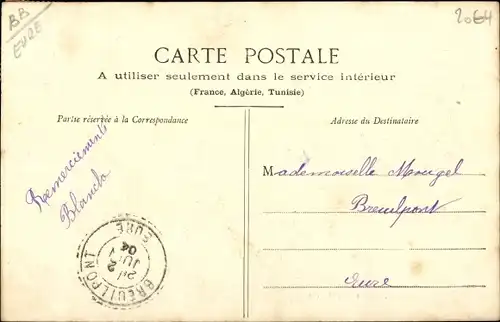 BB
EURE
2064
CARTE POSTALE
A utiliser seulement dans le service intérieur
(France, Algérie, Tunisie)
Partie réservée à la Correspondance
Adresse du Destinataire
Remerciements
Blanche
Mademoiselle Mougel
Breuilpont
Eure
BREUILPONT
EURE
2
JUIL
04